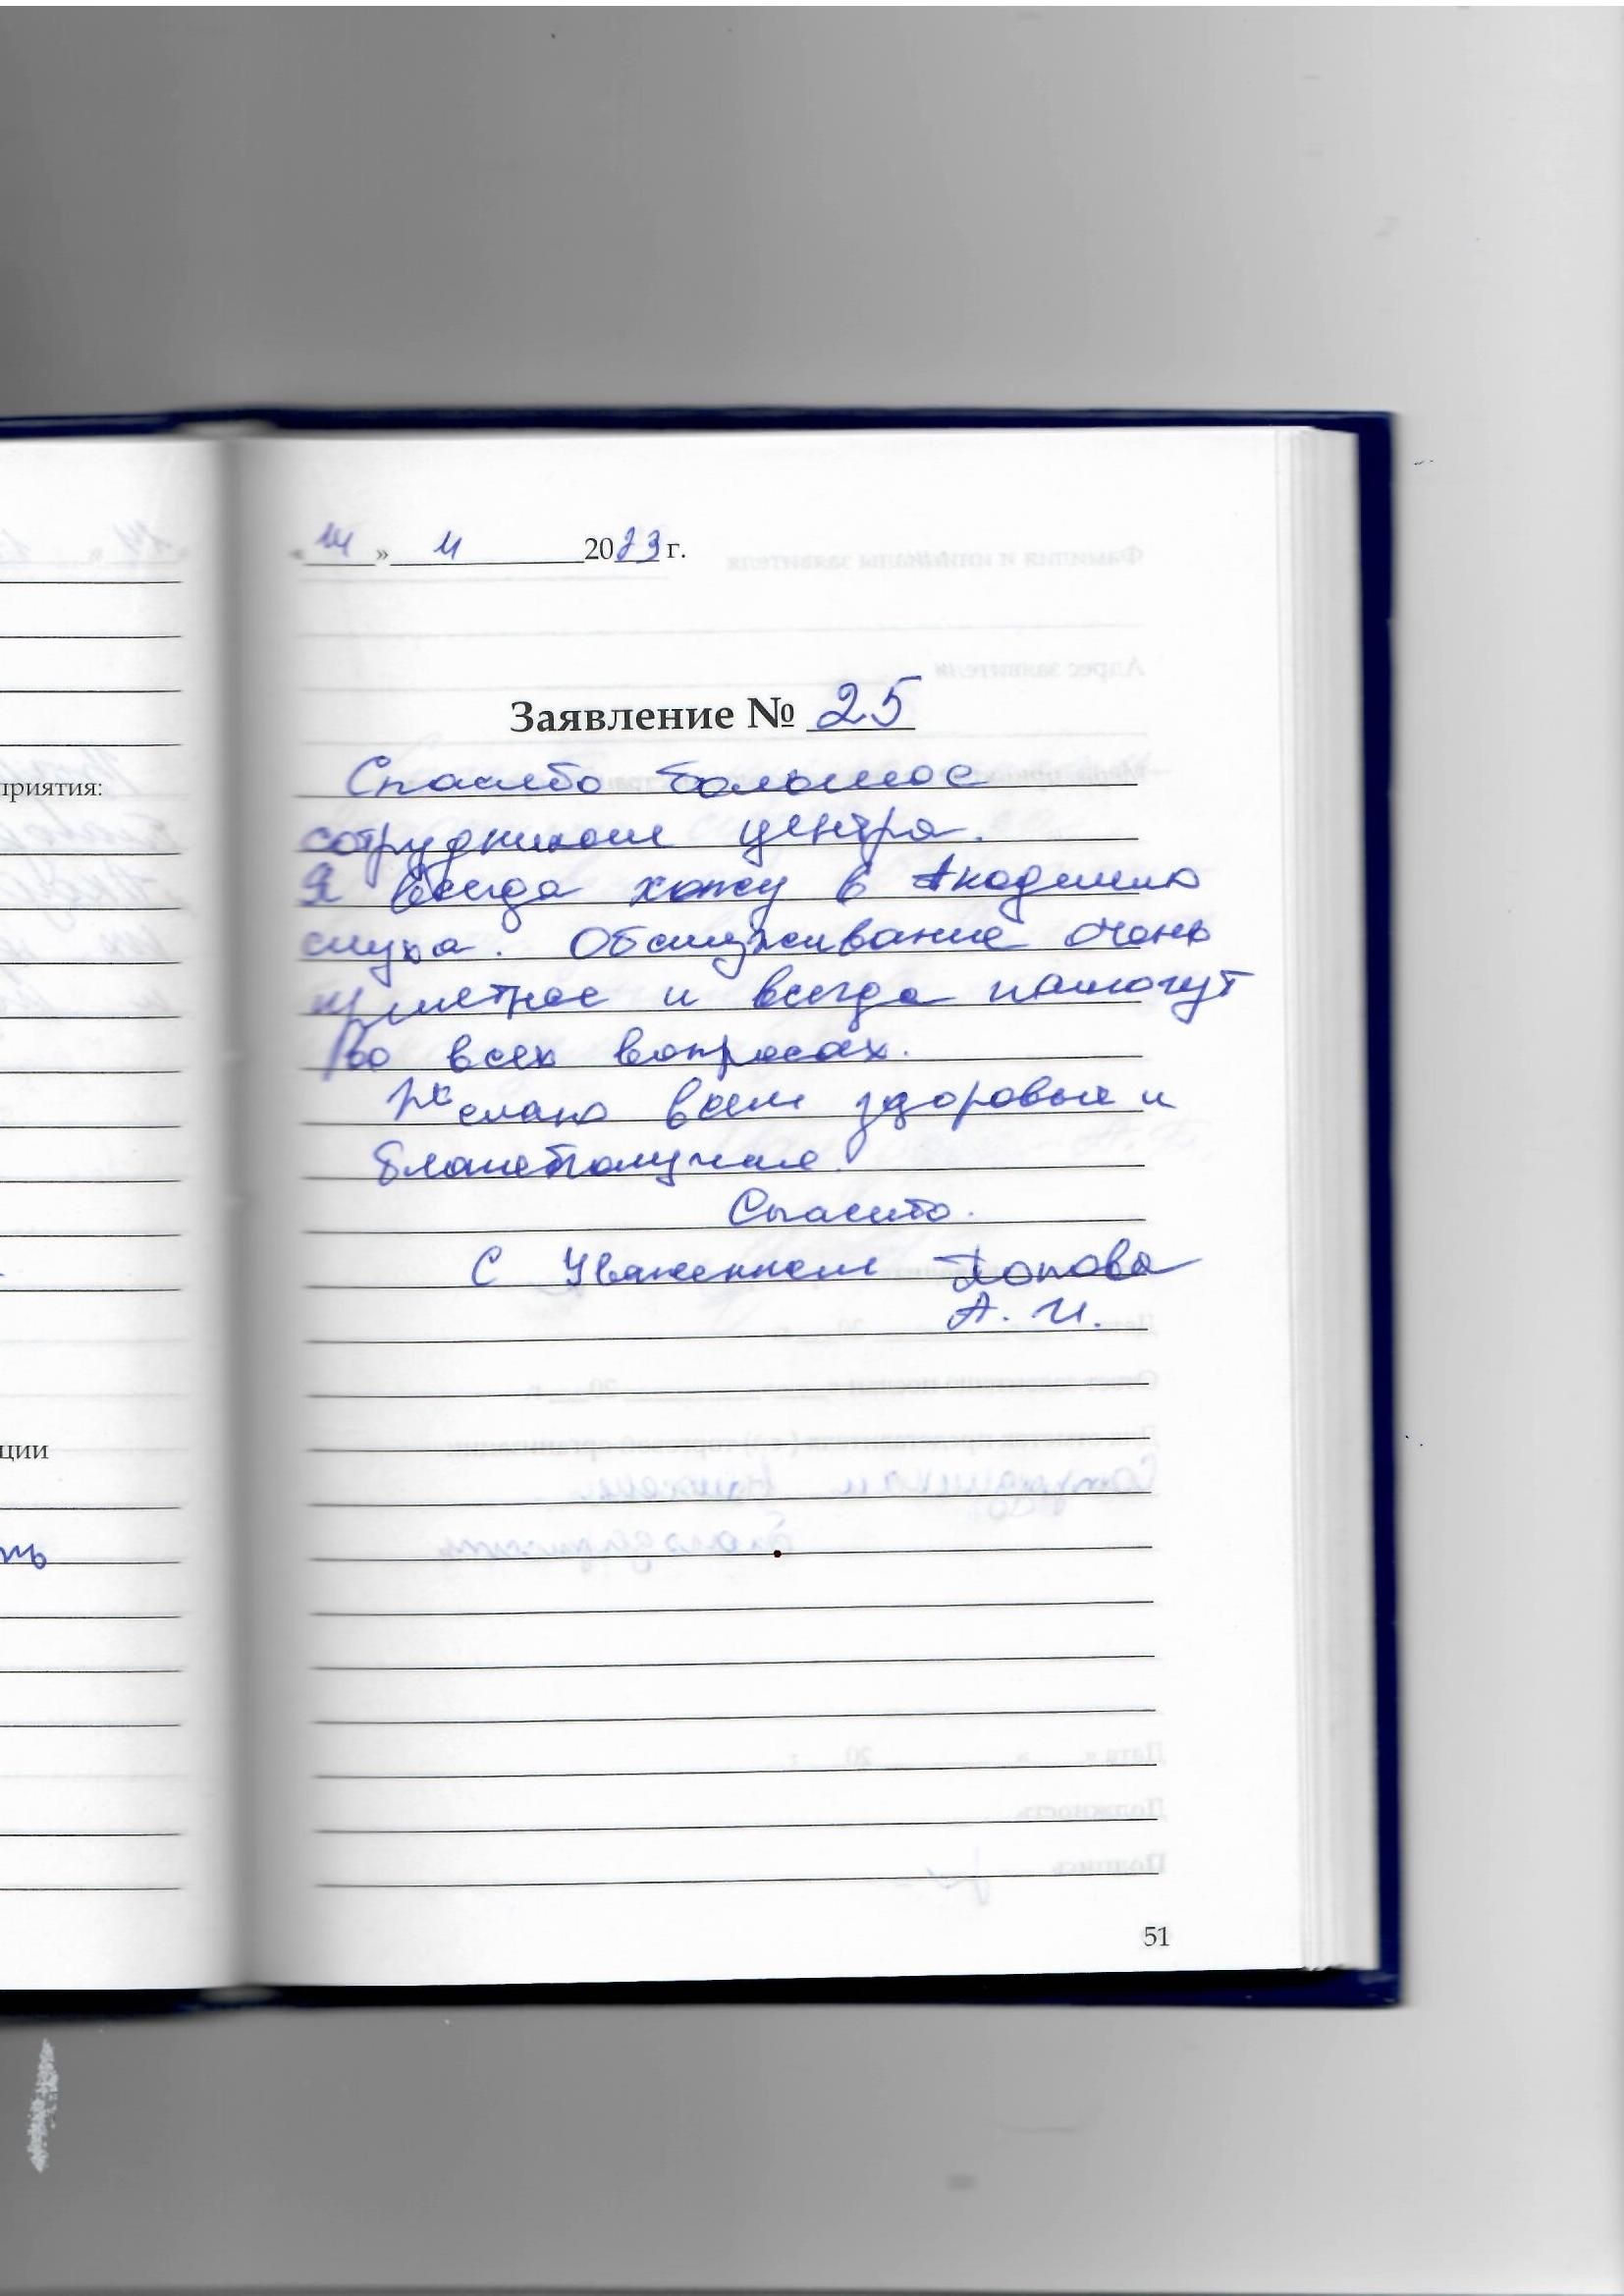 приятия:
ции
« 14 » 11 2023 г.
Заявление № 25
Спасибо большое
сотрудникам центра.
Я всегда хожу в Академию
слуха. Обслуживание очень
приятное и всегда помогут
во всех вопросах.
Желаю всем здоровья и
благополучия.
Спасибо.
С Уважением Попова
А. И.
51